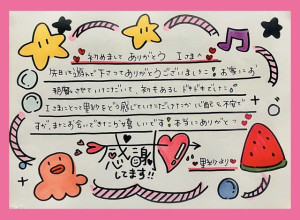 初めまして ありがとう Iさまへ
先日は遊んで下さってありがとうございました！お家にお
邪魔させていただいて、初めあるしドキドキでした。
Iさまにとって里紗をどう感じていただけたか心配&不安で
すが、またお会いできたら嬉しいです！本当にありがとう
感謝
してます!!
里紗より